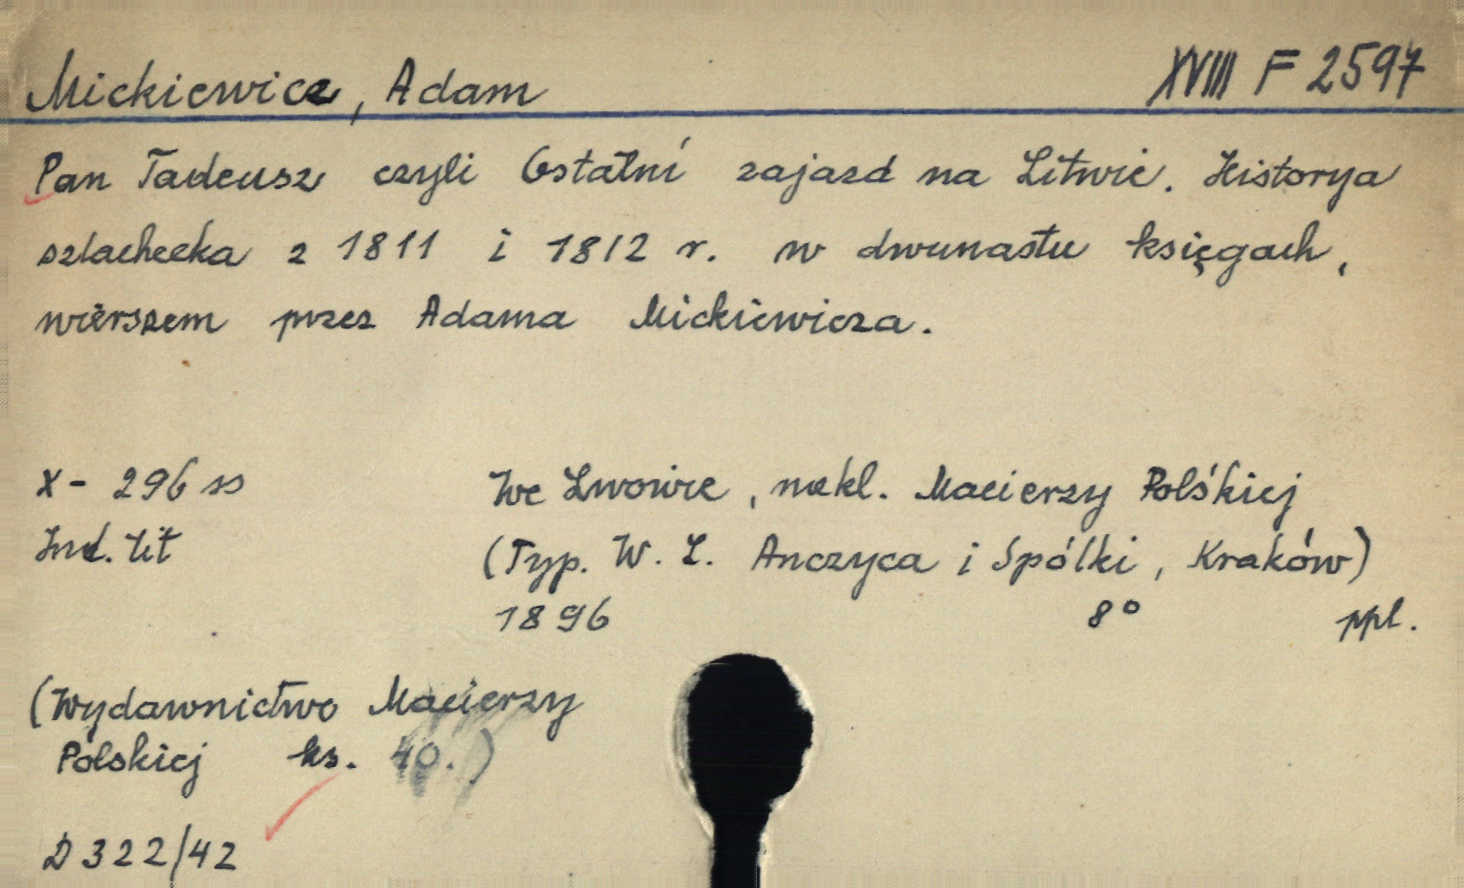 Mickiewicz, Adam XVIII F 2597
Pan Tadeusz czyli Ostatni zajazd na Litwie. Historya
szlachecka z 1811 i 1812 r. w dwunastu księgach,
wierszem przez Adama Mickiewicza.
X - 296 ss We Lwowie, nakl. Macierzy Polskiej
Ind. tit (Typ. W. L. Anczyca i Spólki, Kraków)
1896 8° ppl.
(Wydawnictwo Macierzy
Polskiej ks. 40.)
D 322/42